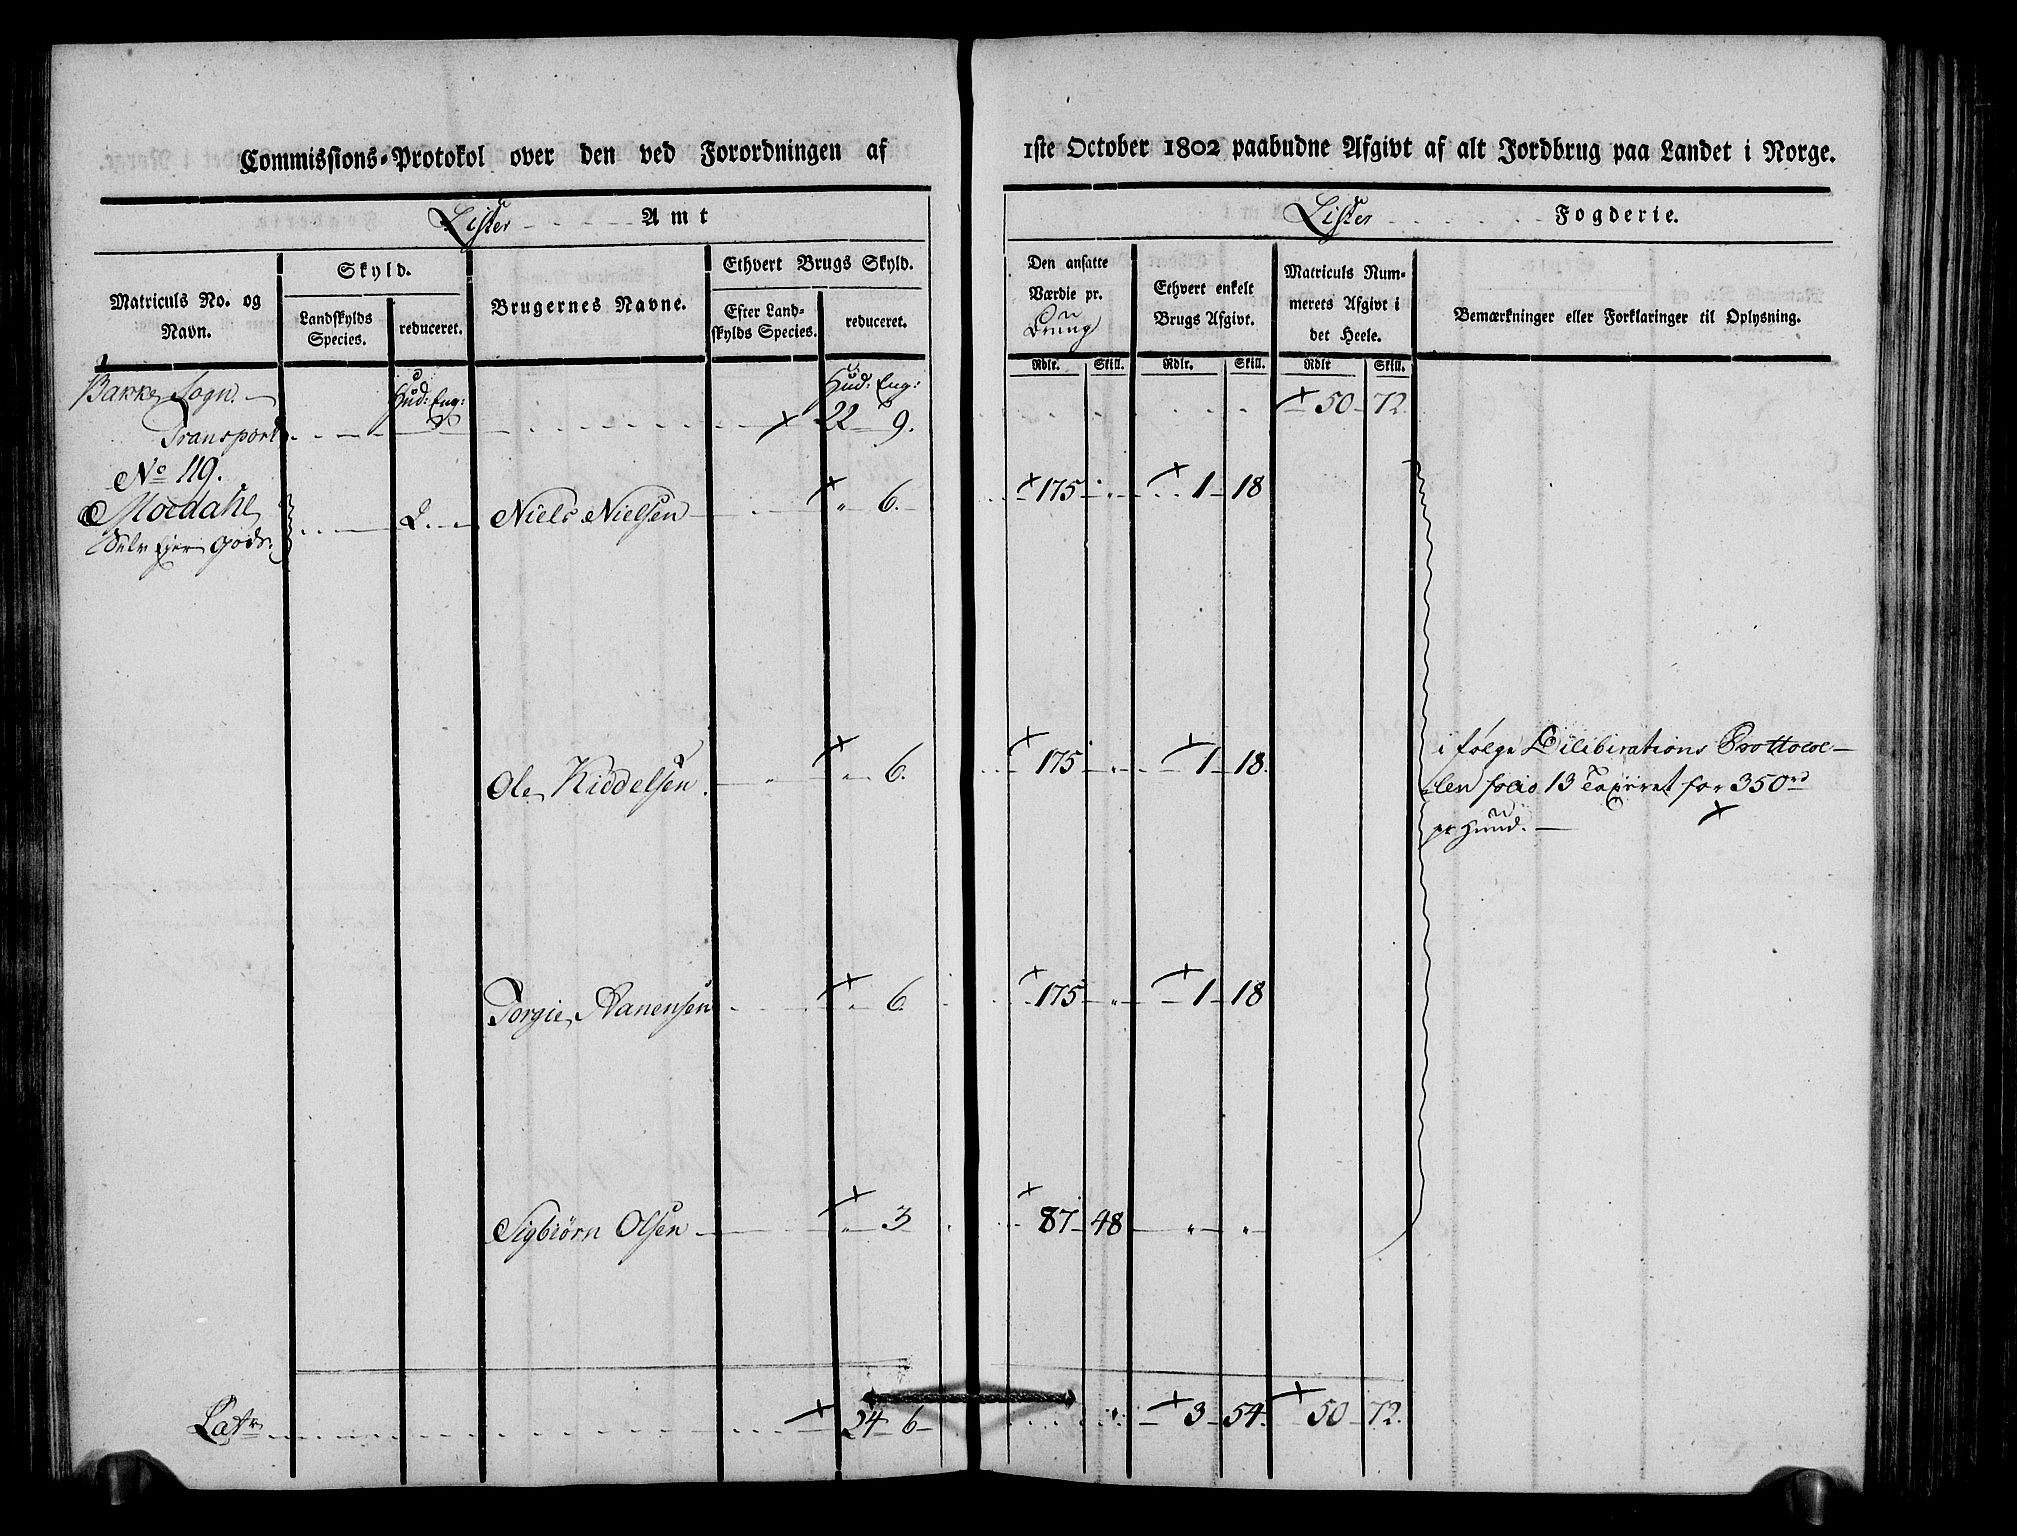 Commissions-Protokol over den ved Forordningen af
1ste October 1802 paabudne Afgivt af alt Jordbrug paa Landet i Norge.
Lister Amt
Lister Fogderie.
Matriculs No. og Navn.
Skyld.
Landskylds Species.
reduceret.
Brugernes Navne.
Ethvert Brugs Skyld.
Efter Land-
skylds Species.
reduceret.
Den ansatte
Værdie pr.
Ethvert enkelt
Brugs Afgivt.
Matriculs Num-
merets Afgivt i
det Heele.
Bemærkninger eller Forklaringer til Oplysning.
Rdlr. Skill. Rdlr. Skill. Rdlr Skill.
Bakke Sogn. Hud: Eng: Hud: Eng:
Transport 22 9. 50 72.
No 119.
Moedahl 2. Niels Nielsen " 6. 175 " 1 18
Selv Ejer Gods
Ole Kiddelsen " 6. 175 " 1 18.
i følge Deliberations Prottocol-
len folio 13 Taxeret for 350 rd
pr Huud.
Torgie Aanensen " 6. 175 " 1 18
Sigbiørn Olsen " 3 87 48 " "
Latr 24 6 3 54. 50 72.